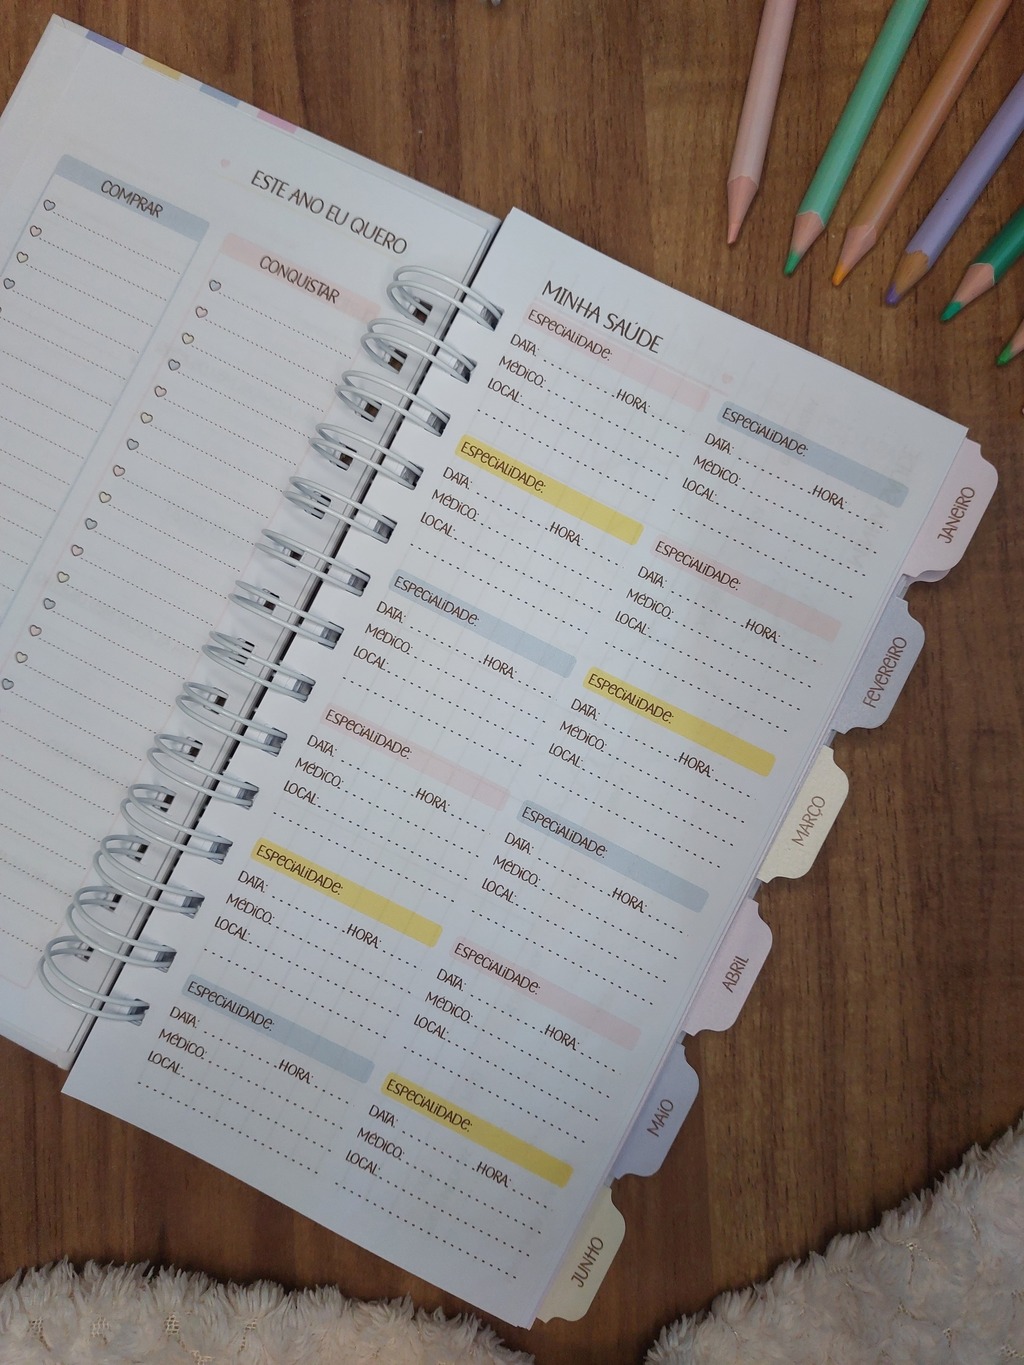 ESTE ANO EU QUERO
COMPRAR
CONQUISTAR
MINHA SAÚDE
ESPECIALIDADE:
DATA: HORA:
MÉDICO:
LOCAL:
ESPECIALIDADE:
DATA: HORA:
MÉDICO:
LOCAL:
ESPECIALIDADE:
DATA: HORA:
MÉDICO:
LOCAL:
ESPECIALIDADE:
DATA: HORA:
MÉDICO:
LOCAL:
ESPECIALIDADE:
DATA: HORA:
MÉDICO:
LOCAL:
ESPECIALIDADE:
DATA: HORA:
MÉDICO:
LOCAL:
ESPECIALIDADE:
DATA: HORA:
MÉDICO:
LOCAL:
ESPECIALIDADE:
DATA: HORA:
MÉDICO:
LOCAL:
ESPECIALIDADE:
DATA: HORA:
MÉDICO:
LOCAL:
ESPECIALIDADE:
DATA: HORA:
MÉDICO:
LOCAL:
ESPECIALIDADE:
DATA: HORA:
MÉDICO:
LOCAL:
ESPECIALIDADE:
DATA: HORA:
MÉDICO:
LOCAL:
JANEIRO
FEVEREIRO
MARÇO
ABRIL
MAIO
JUNHO